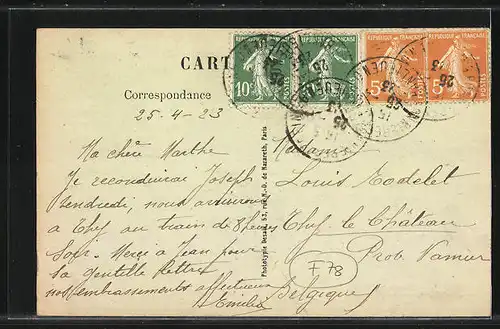 CART
REPUBLIQUE FRANÇAISE
REPUBLIQUE FRANÇAISE
REPUBLIQUE FRANÇAISE
REPUBLIQUE FRANÇAISE
10c
POSTES
POSTES
5c
POSTES
5c
POSTES
Correspondance
25-4-23
Ma chère Marthe
Je reconduirai Joseph
vendredi, nous arriverons
à Thy au train de 8 heures
soir. Merci à Jean pour
sa gentille lettre
nos embrassements affectueux
Emilie
Phototypie Desaix, rue N.-D. de Nazareth, Paris
Madame
Louis
Thy le Château
Prov. Namur
F78
Belgique